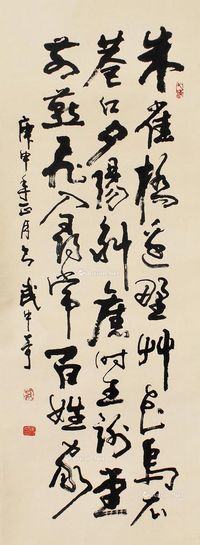 朱雀橋邊野艸花烏衣
巷口夕陽斜舊時王謝堂
前燕飛入尋常百姓家
庚申年正月書武中奇